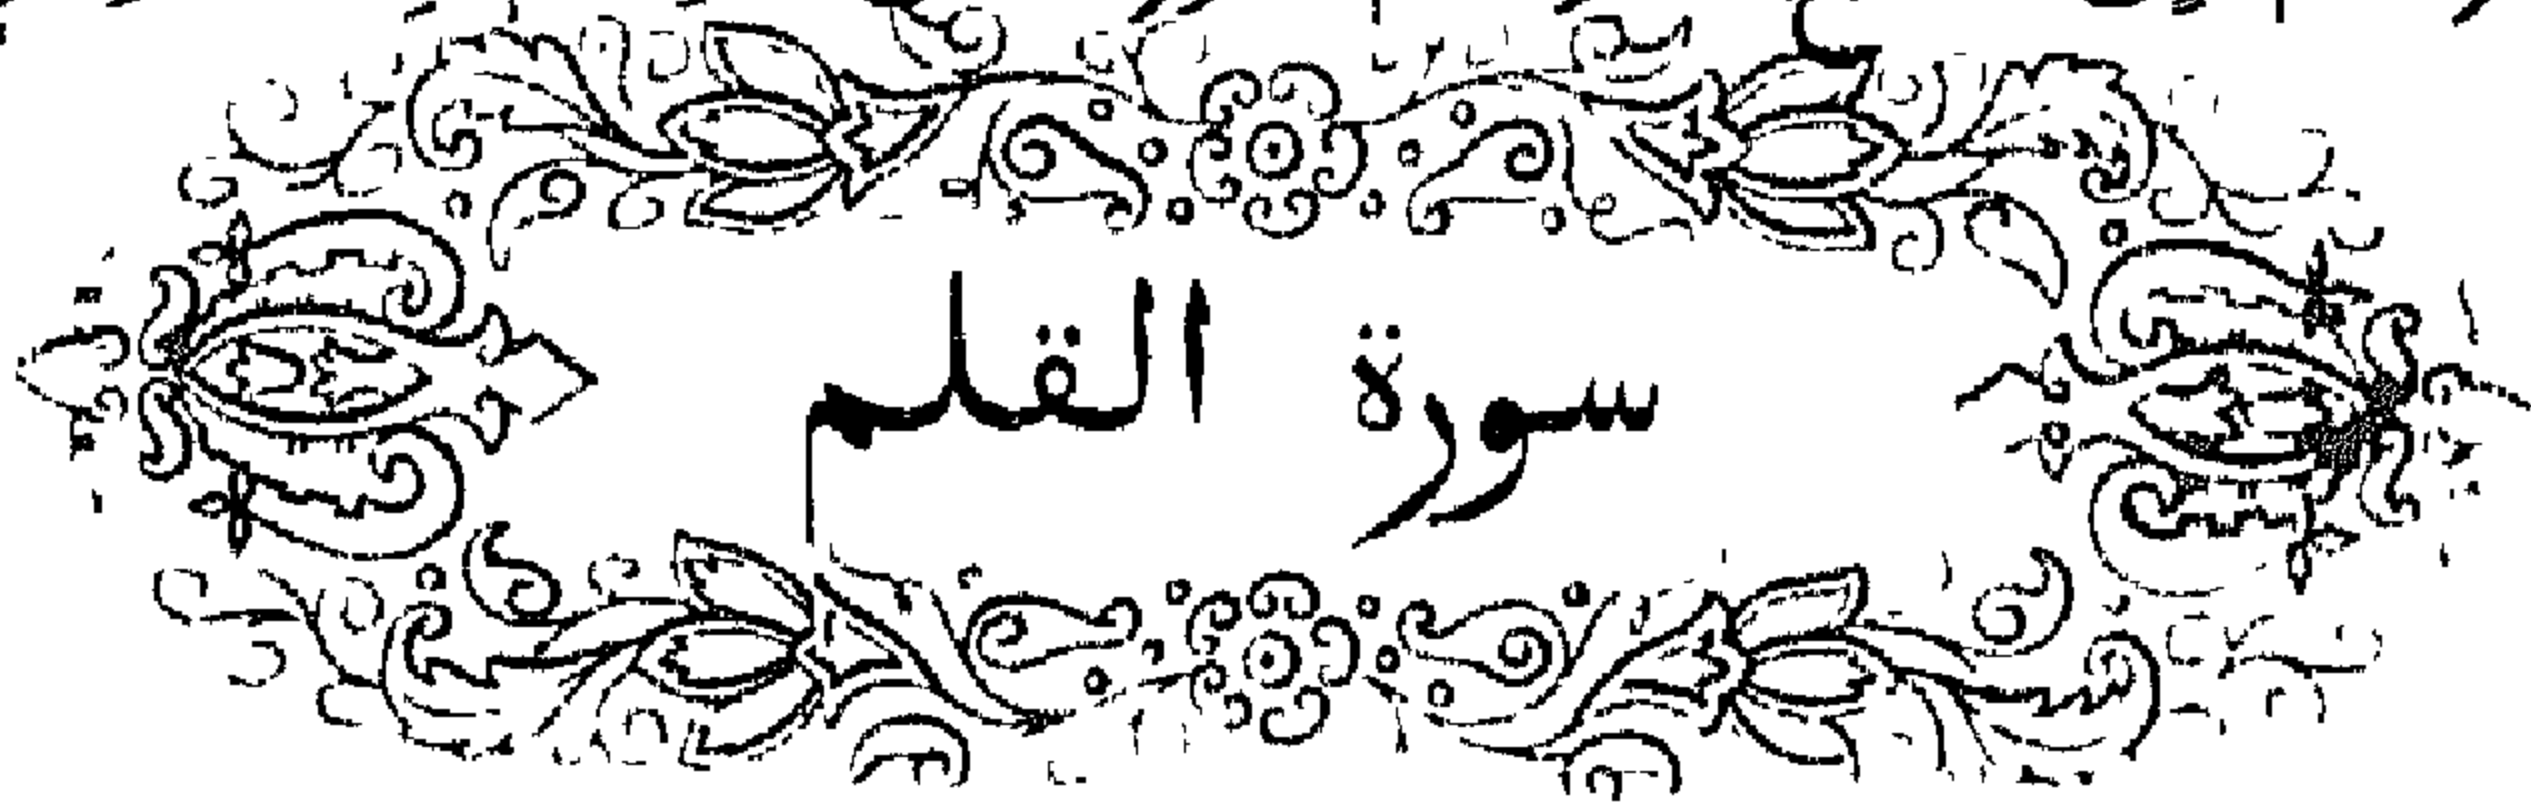 سورة القلم